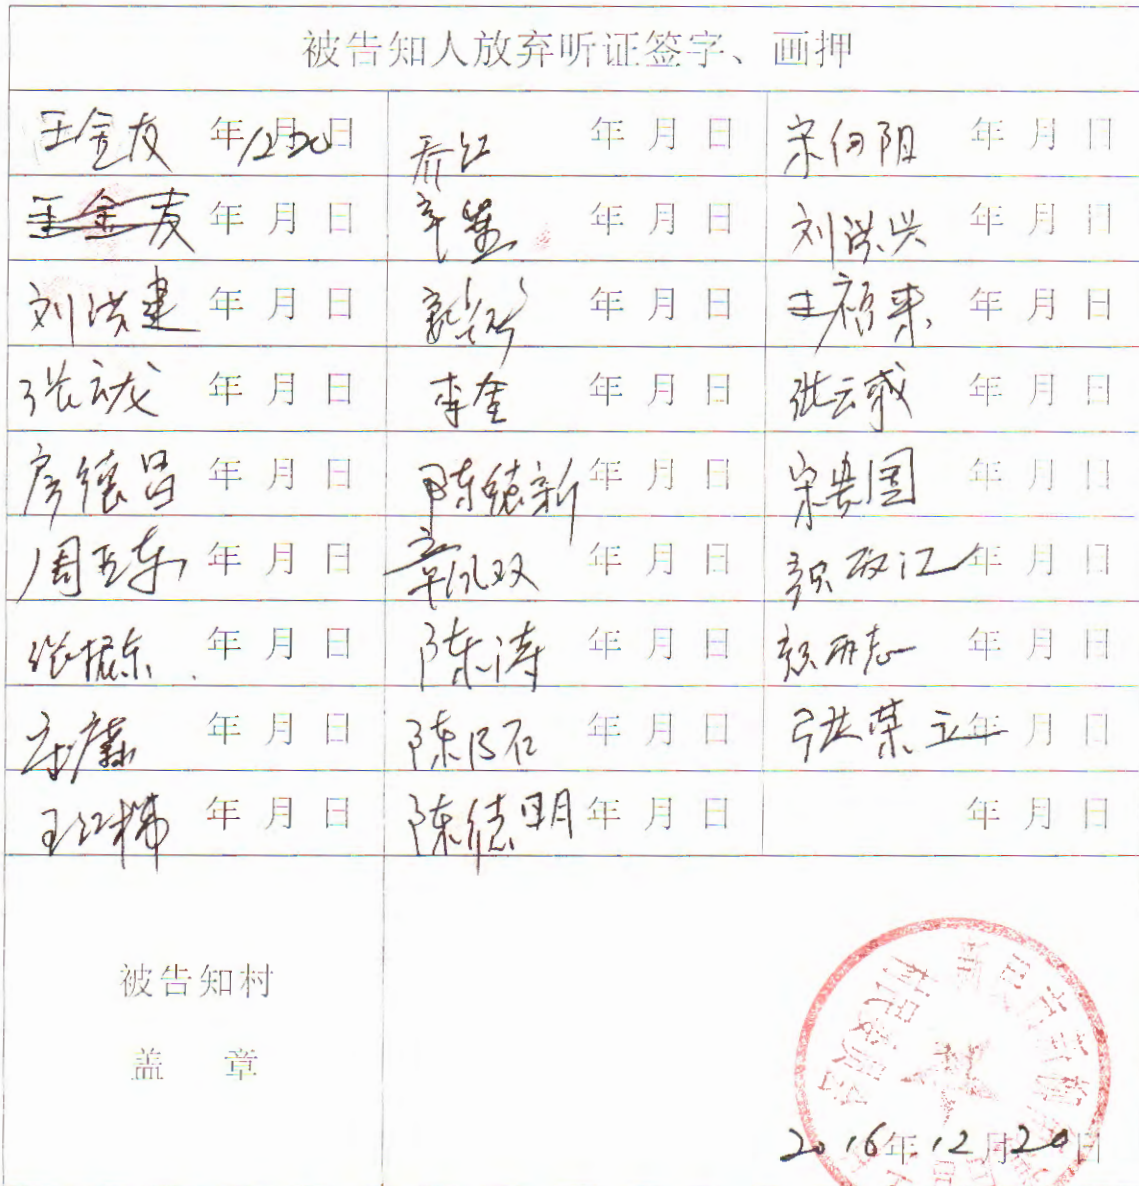 被告知人放弃听证签字、画押
王金友 年12月20日 乔江 年 月 日 宋向阳 年 月 日
王金友 年 月 日 年 月 日 刘洪兴 年 月 日
刘洪建 年 月 日 年 月 日 王福来 年 月 日
张云龙 年 月 日 李奎 年 月 日 张云成 年 月 日
房德昌 年 月 日 陈德新 年 月 日 宋贵国 年 月 日
周玉东 年 月 日 辛凤双 年 月 日 颜政江 年 月 日
张振东 年 月 日 陈涛 年 月 日 年 月 日
年 月 日 陈乃石 年 月 日 张荣立 年 月 日
王红梅 年 月 日 陈德明 年 月 日 年 月 日
被告知村
盖 章
村民委员会
2016年12月20日